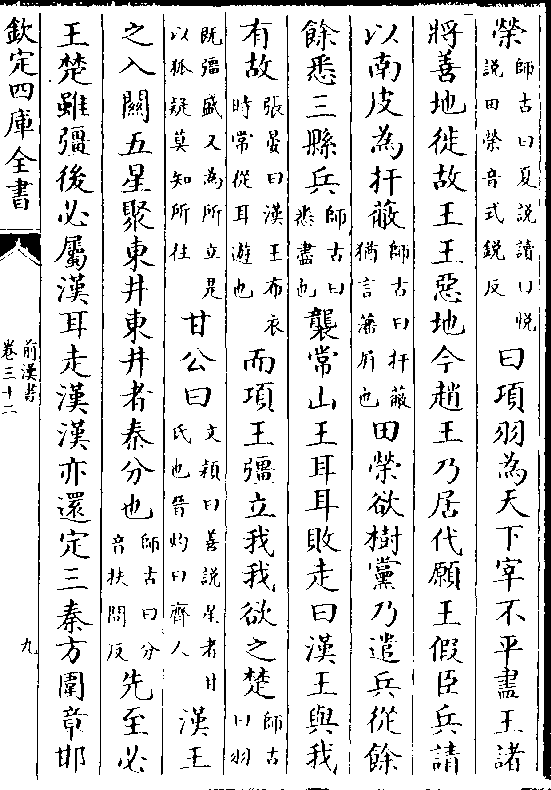 榮師古曰夏說讀曰悅說田榮音式銳反曰項羽為天下宰不平盡王諸
將善地徙故王王惡地今趙王乃居代願王假臣兵請
以南皮為扞蔽師古曰扞蔽猶言藩屏也田榮欲樹黨乃遣兵從餘
餘悉三縣兵師古曰悉盡也襲常山王耳耳敗走曰漢王與我
有故張晏曰漢王布衣時常從耳遊也而項王彊立我我欲之楚師古曰羽
既彊盛又為所立是以狐疑莫知所往甘公曰文穎曰善說星者甘氏也晉灼曰齊人漢王
之入關五星聚東井東井者秦分也師古曰分音扶問反先至必
王楚雖彊後必屬漢耳走漢漢亦還定三秦方圍章邯
欽定四庫全書
前漢書
卷三十二
九